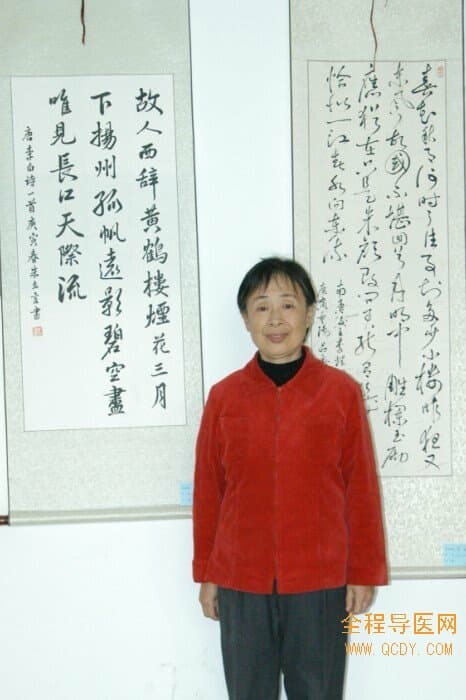 春花秋月何時了往事知多少小樓昨夜又
東風故國不堪回首月明中雕欄玉砌
應猶在只是朱顏改問君能有
恰似一江春水向東流
南唐後主李煜
庚寅
故人西辞黄鶴樓煙花三月
下揚州孤帆遠影碧空盡
唯見長江天際流
唐李白詩一首庚寅春朱玉書
全程导医网
www.QCDY.com